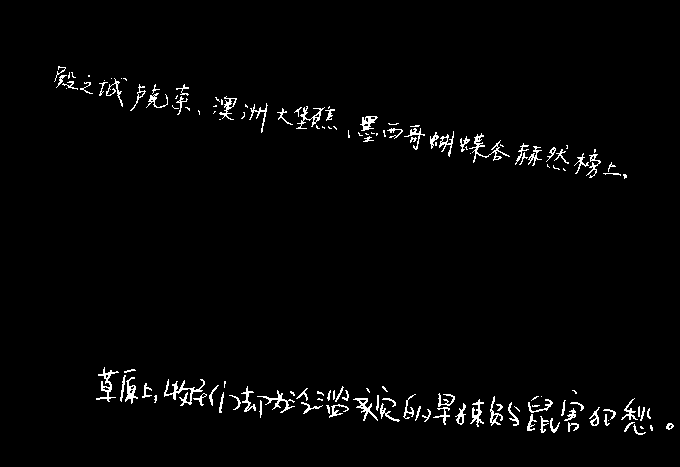 殿之城卢克索、澳洲大堡礁、墨西哥蝴蝶谷赫然榜上。
草原上,牧民们却为泛滥成灾的旱獭与鼠害犯愁。